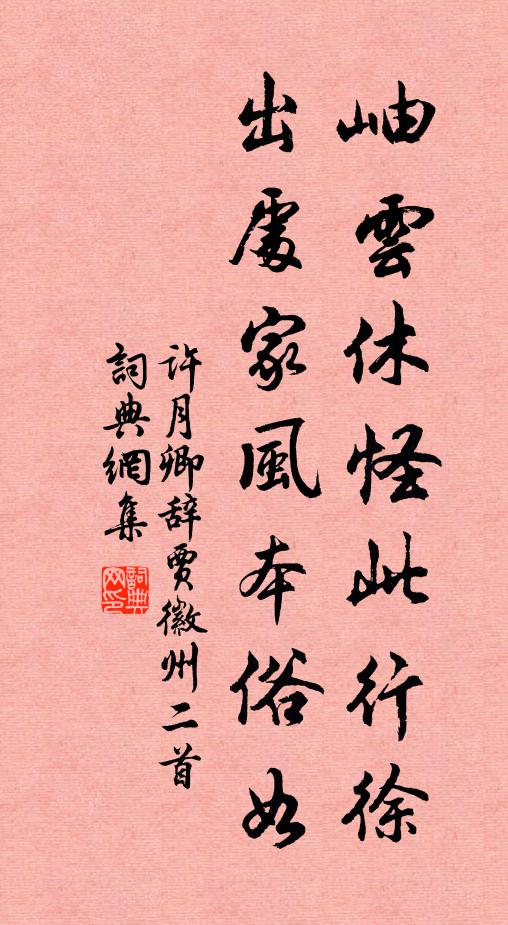 岫雲休怪此行徐
出處家風本俗如
許月卿辞賈徽州二首
詞典網集
詞典网印